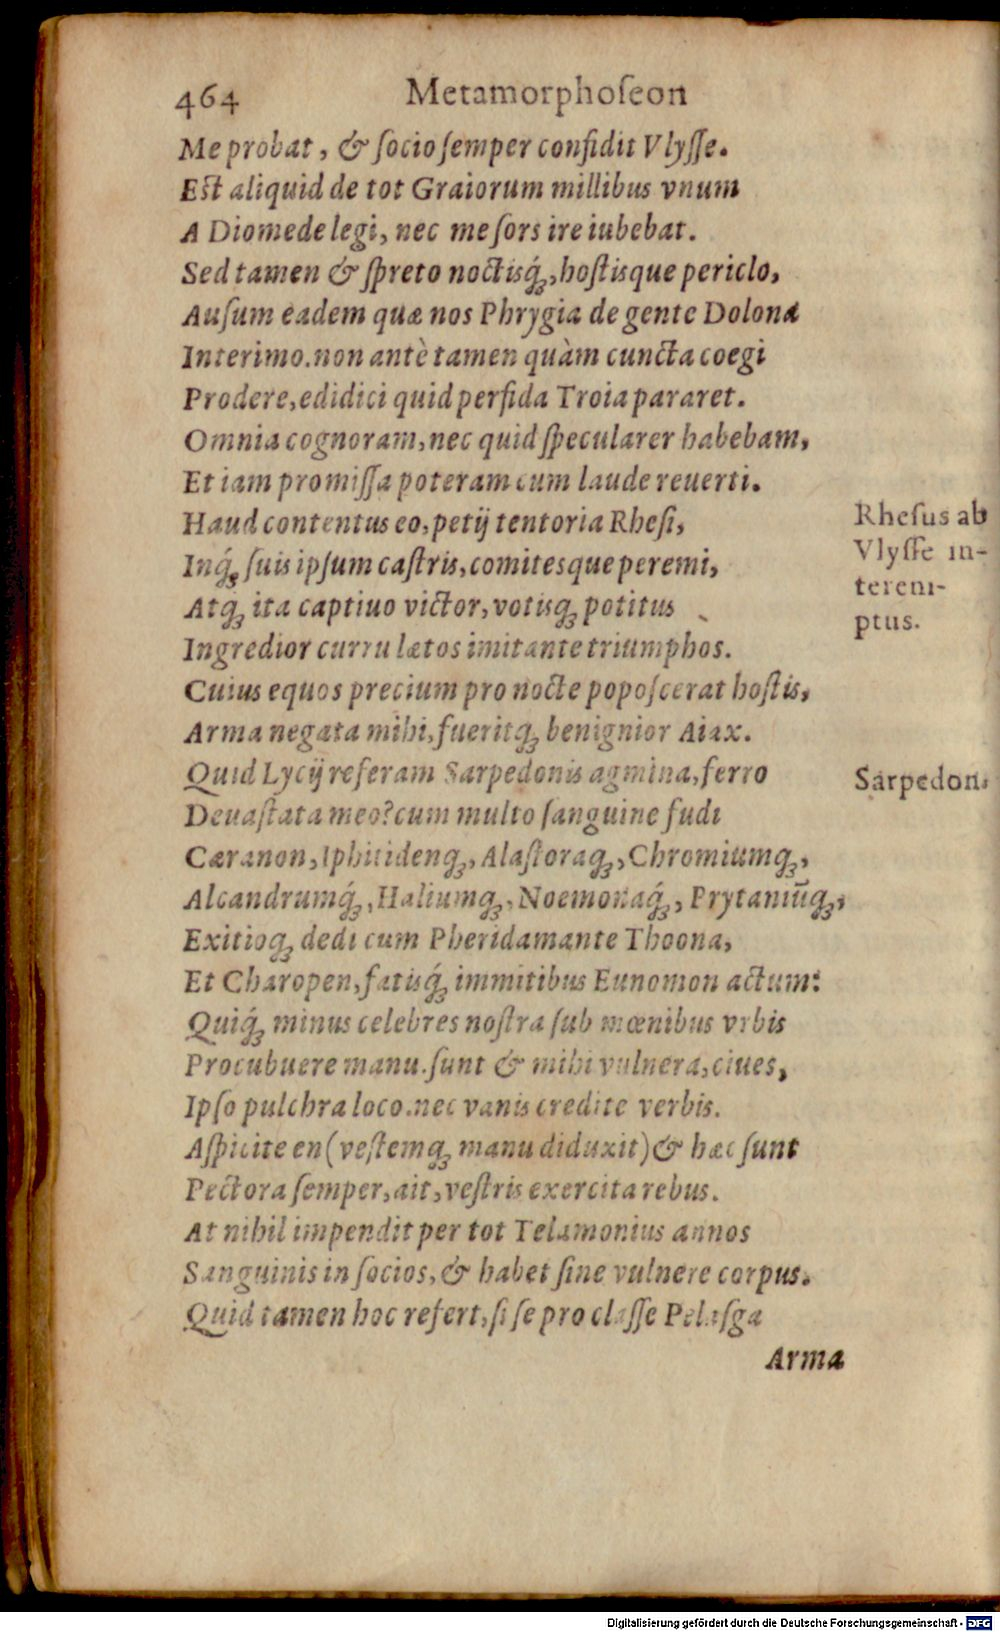 464 Metamorphoſeon
Me probat, & ſocio ſemper confidit Vlyſſe.
Est aliquid de tot Graiorum millibus vnum
A Diomede legi, nec me ſors ire iubebat.
Sed tamen & ſpreto noctisq́;, hoſtisque periclo,
Auſum eadem quæ nos Phrygia de gente Dolona
Interimo. non antè tamen quàm cuncta coegi
Prodere, edidici quid perfida Troia pararet.
Omnia cognoram, nec quid ſpecularer habebam,
Et iam promiſſa poteram cum laude reuerti.
Haud contentus eo, petij tentoria Rheſi,
Inq́; ſuis ipſum caſtris, comitesque peremi,
Atq; ita captiuo victor, votisq; potitus
Ingredior curru lætos imitante triumphos.
Cuius equos precium pro nocte popoſcerat hoſtis,
Arma negata mihi, fueritq; benignior Aiax.
Quid Lycij referam Sarpedonis agmina, ferro
Deuaſtata meo? cum multo ſanguine fudi
Cæranon, Iphitidenq;, Alaſtoraq;, Chromiumq;,
Alcandrumq́;, Haliumq;, Noemonaq́;, Prytaniūq;,
Exitioq; dedi cum Pheridamante Thoona,
Et Charopen, fatisq́; immitibus Eunomon actum:
Quiq́; minus celebres noſtra ſub mœnibus vrbis
Procubuere manu. ſunt & mihi vulnera, ciues,
Ipſo pulchra loco. nec vanis credite verbis.
Aſpicite en (veſtemq; manu diduxit) & hæc ſunt
Pectora ſemper, ait, veſtris exercita rebus.
At nihil impendit per tot Telamonius annos
Sanguinis in ſocios, & habet ſine vulnere corpus.
Quid tamen hoc refert, ſi ſe pro claſſe Pelaſga
Arma
Rheſus ab
Vlyſſe in-
terem-
ptus.
Sarpedon.
Digitalisierung gefördert durch die Deutsche Forschungsgemeinschaft - DFG